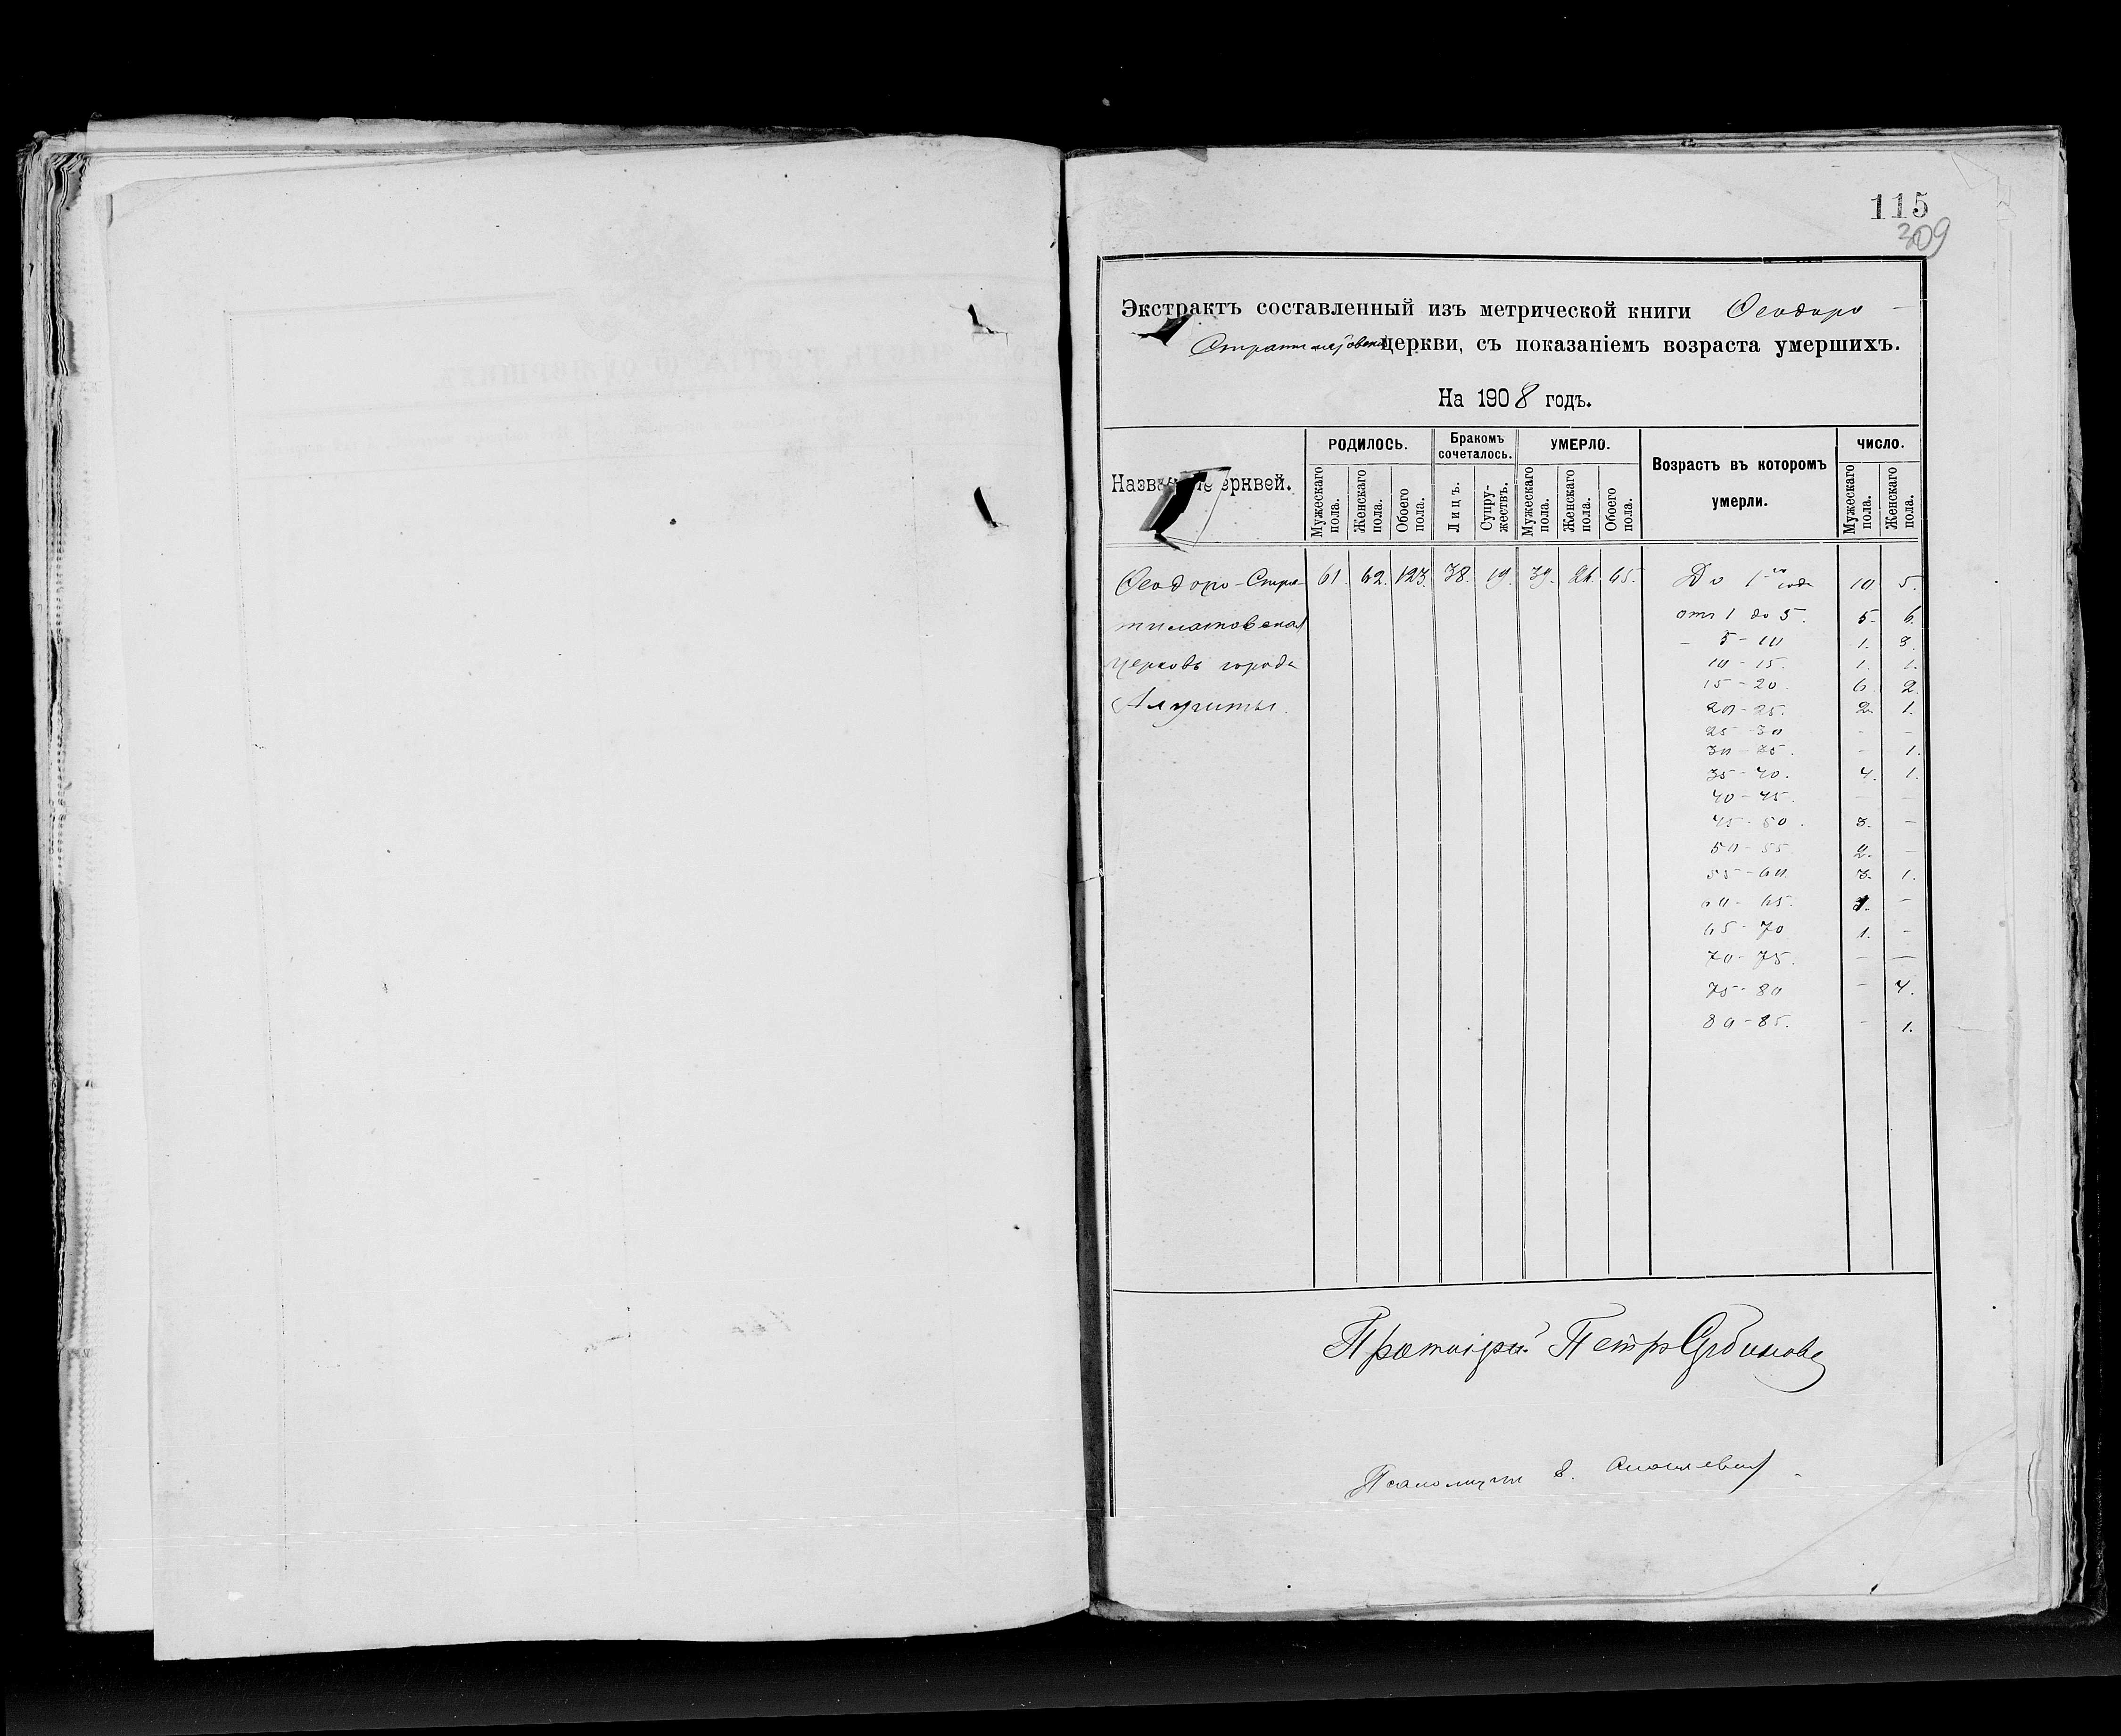 115
309
Экстрактъ составленный изъ метрической книги Ѳеодоро-
Стратилатовской церкви, съ показаніемъ возраста умершихъ.
На 1908 годъ.
Назва е ерквей.
РОДИЛОСЬ.
Бракомъ сочеталось.
УМЕРЛО.
Возрастъ въ которомъ умерли.
ЧИСЛО.
Мужескаго пола.
Женскаго пола.
Обоего пола.
Лицъ.
Супру-жествъ.
Мужескаго пола.
Женскаго пола.
Обоего пола.
Мужескаго пола.
Женскаго пола.
Ѳеодоро-Стра- 61. 62. 123. 38. 19. 39. 26. 65. До 1го года 10 5.
тилатовская от 1 до 5. 5. 6.
- 5-10 1. 3.
церковь города 10-15. 1. 1.
15-20. 6. 2.
Алушты. 20-25. 2. 1.
25-30 - -
30-35. - 1.
35-40. 4. 1.
40-45. - -
45-50. 3. -
50-55. 2. -
55-60. 3. 1.
60-65. 1. -
65-70 1. -
70-75. - -
75-80 - 4.
80-85. - 1.
Протоіерей Петръ Сербиновъ
Псаломщик